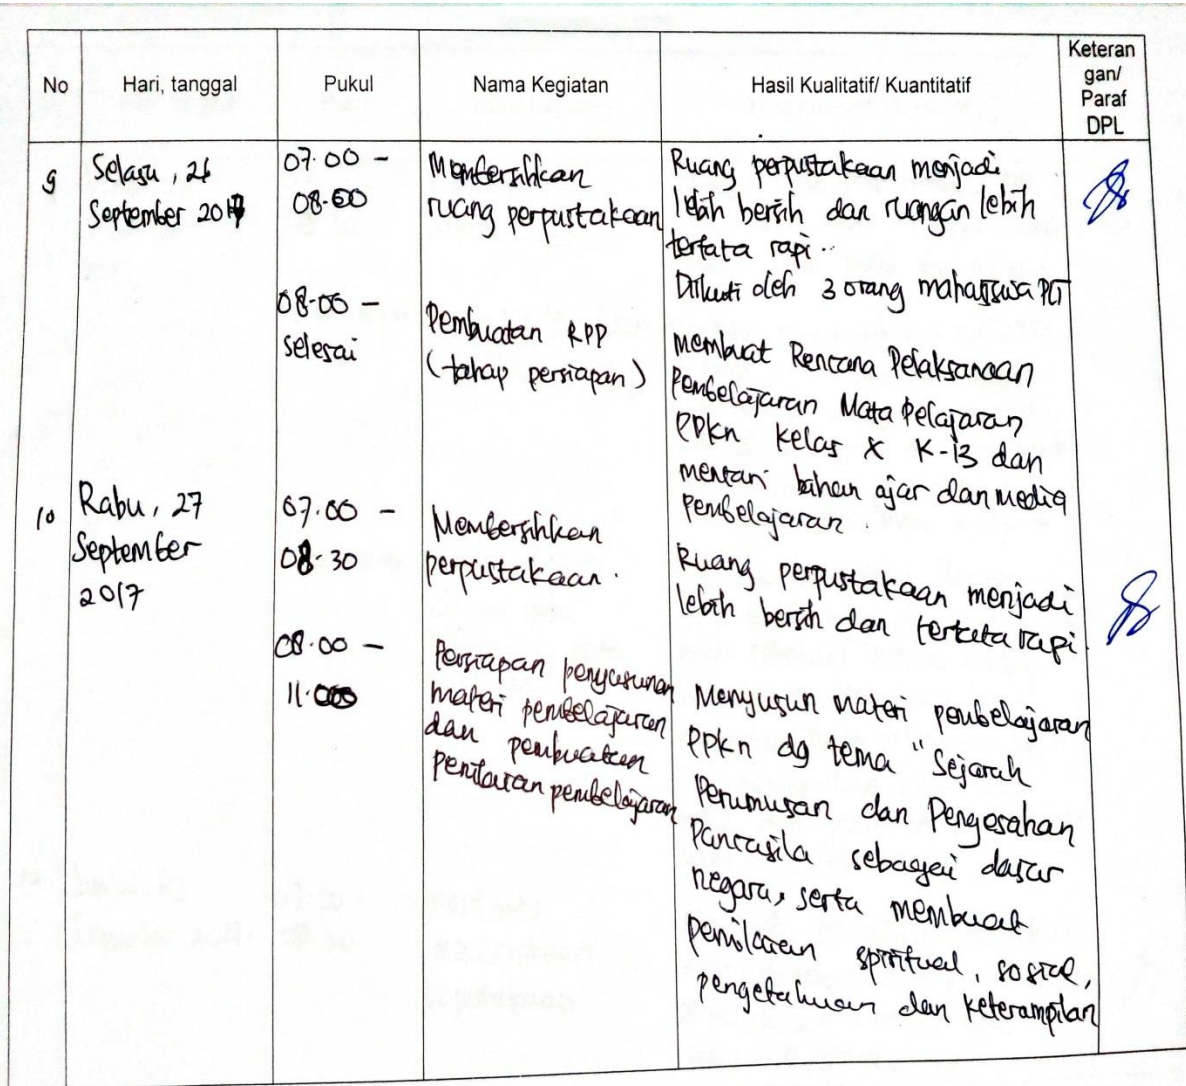 No
Hari, tanggal
Pukul
Nama Kegiatan
Hasil Kualitatif/ Kuantitatif
Keteran
gan/
Paraf
DPL
9
Selasa, 26
September 2017
07.00 -
08.00
Membersihkan
ruang perpustakaan
Ruang perpustakaan menjadi
lebih bersih dan ruangan lebih
tertata rapi..
Diikuti oleh 3 orang mahasiswa PLT
08.00 -
selesai
Pembuatan RPP
(tahap persiapan)
membuat Rencana Pelaksanaan
Pembelajaran Mata Pelajaran
PPKn kelas X K-13 dan
mencari bahan ajar dan media
pembelajaran.
10
Rabu, 27
September
2017
07.00 -
08.30
Membersihkan
perpustakaan.
Ruang perpustakaan menjadi
lebih bersih dan tertata rapi
08.00 -
11.00
Persiapan penyusunan
materi pembelajaran
dan pembuatan
penilaian pembelajaran
Menyusun materi pembelajaran
PPKn dg tema "Sejarah
Perumusan dan Pengesahan
Pancasila sebagai dasar
negara, serta membuat
penilaian spiritual, sosial,
pengetahuan dan keterampilan